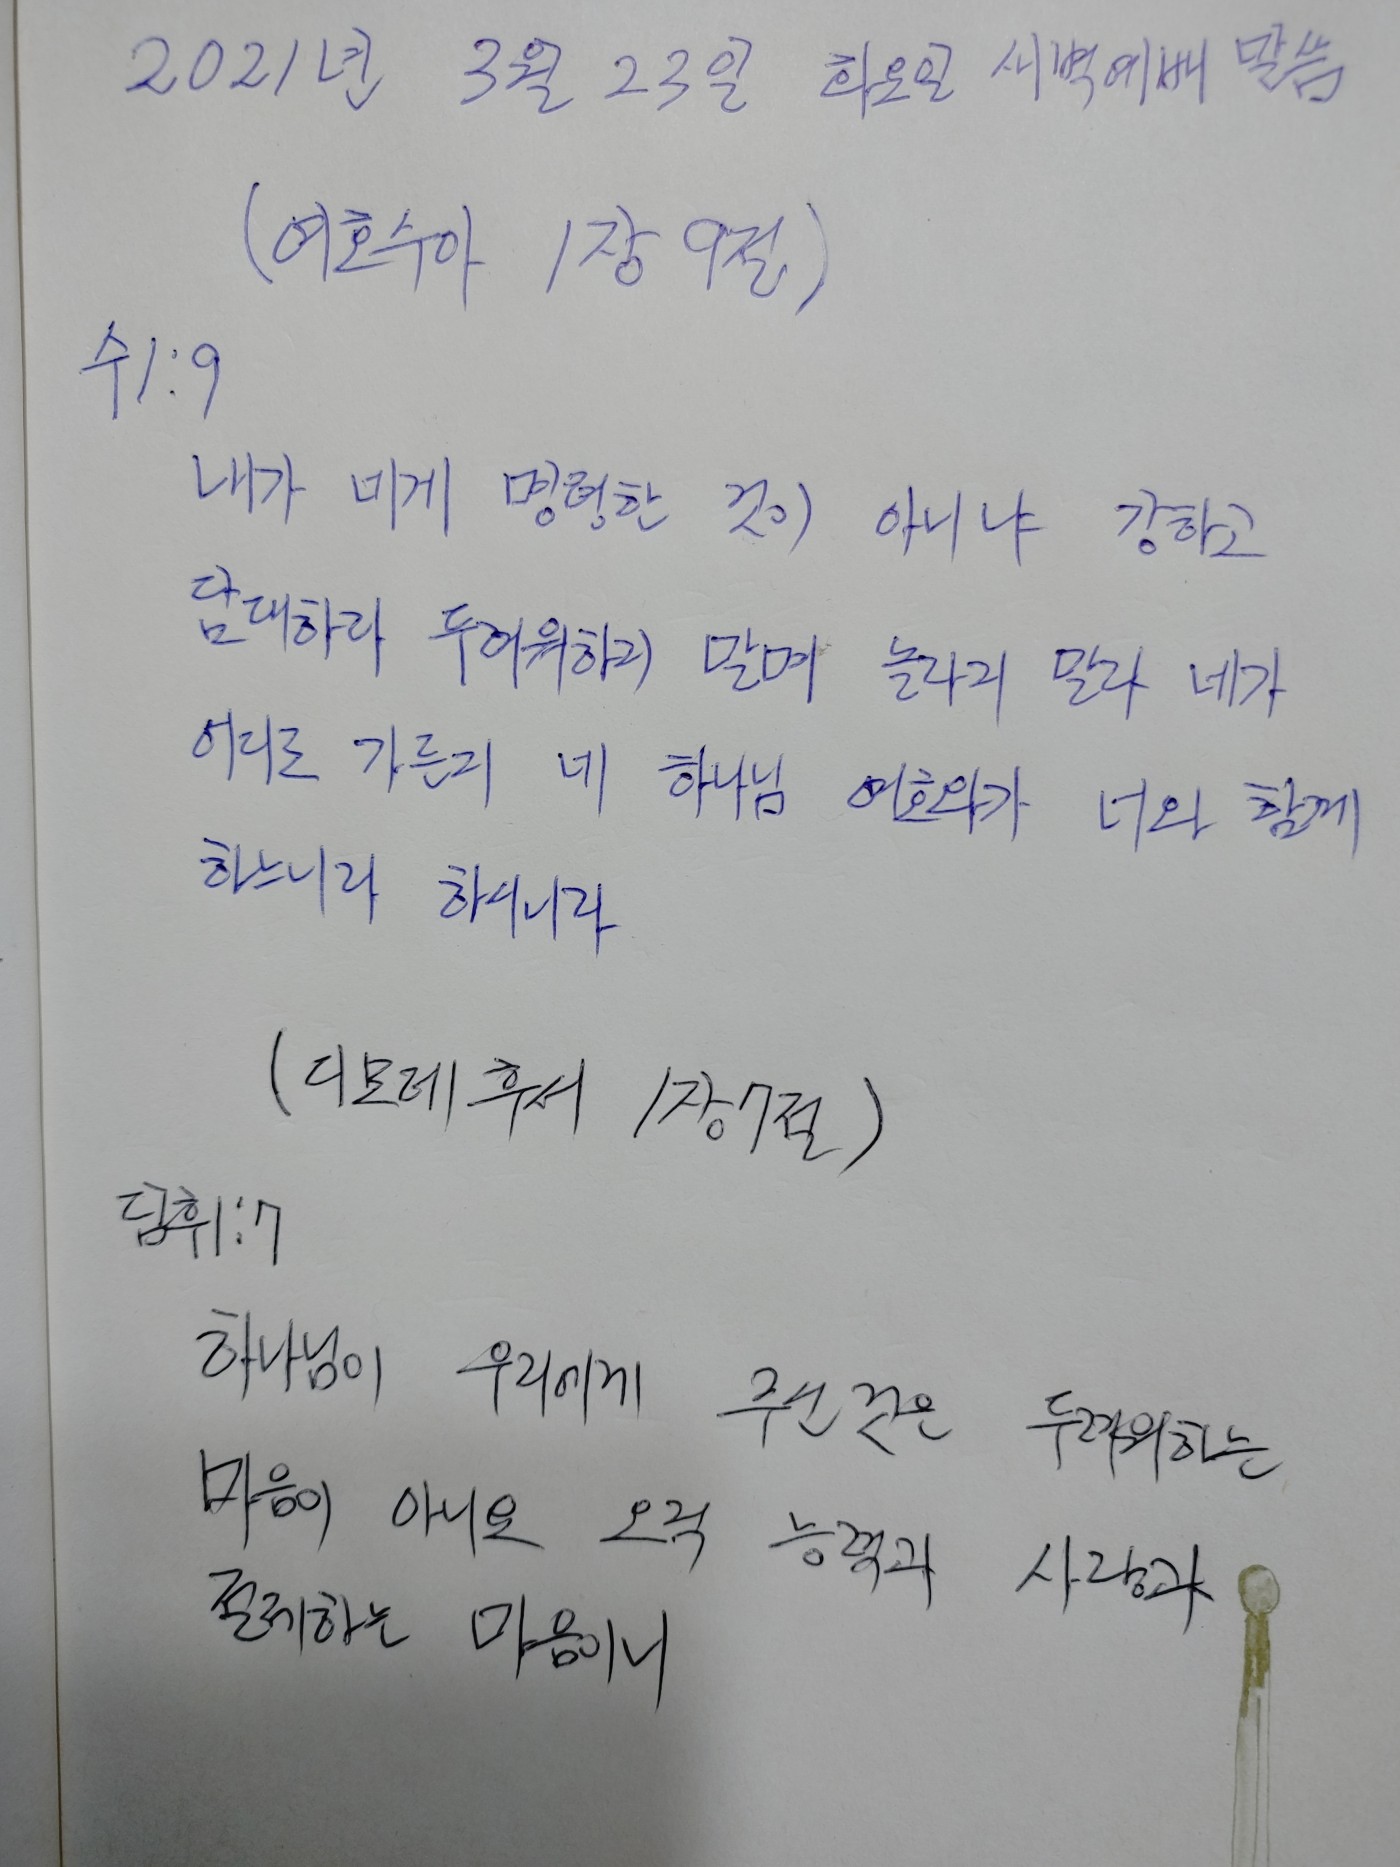 2021년 3월 23일 화요일 새벽예배 말씀
(여호수아 1장 9절)
수1:9
내가 네게 명령한 것이 아니냐 강하고
담대하라 두려워하지 말며 놀라지 말라 네가
어디로 가든지 네 하나님 여호와가 너와 함께
하느니라 하시니라
(디모데후서 1장7절)
딤후1:7
하나님이 우리에게 주신 것은 두려워하는
마음이 아니요 오직 능력과 사랑과
절제하는 마음이니